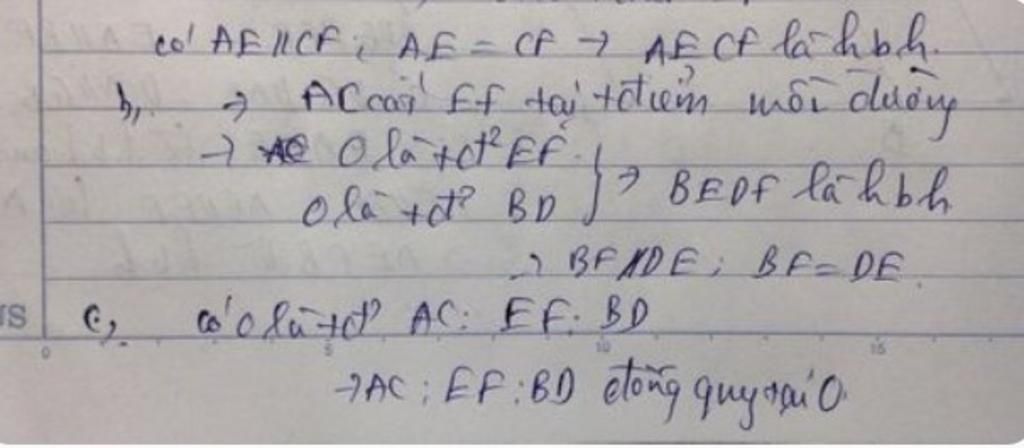 có AE // CF ; AE = CF → AECF là hbh.
b, → AC cắt EF tại tđiểm mỗi đường
→ O là tđ² EF.
O là tđ² BD } → BEDF là hbh
→ BF // DE ; BF = DE.
c, có O là tđ² AC ; EF ; BD
→ AC ; EF ; BD đồng quy tại O.
0 5 10 15